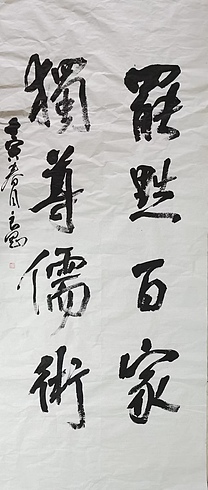 罷黜百家
獨尊儒術
壬寅春月